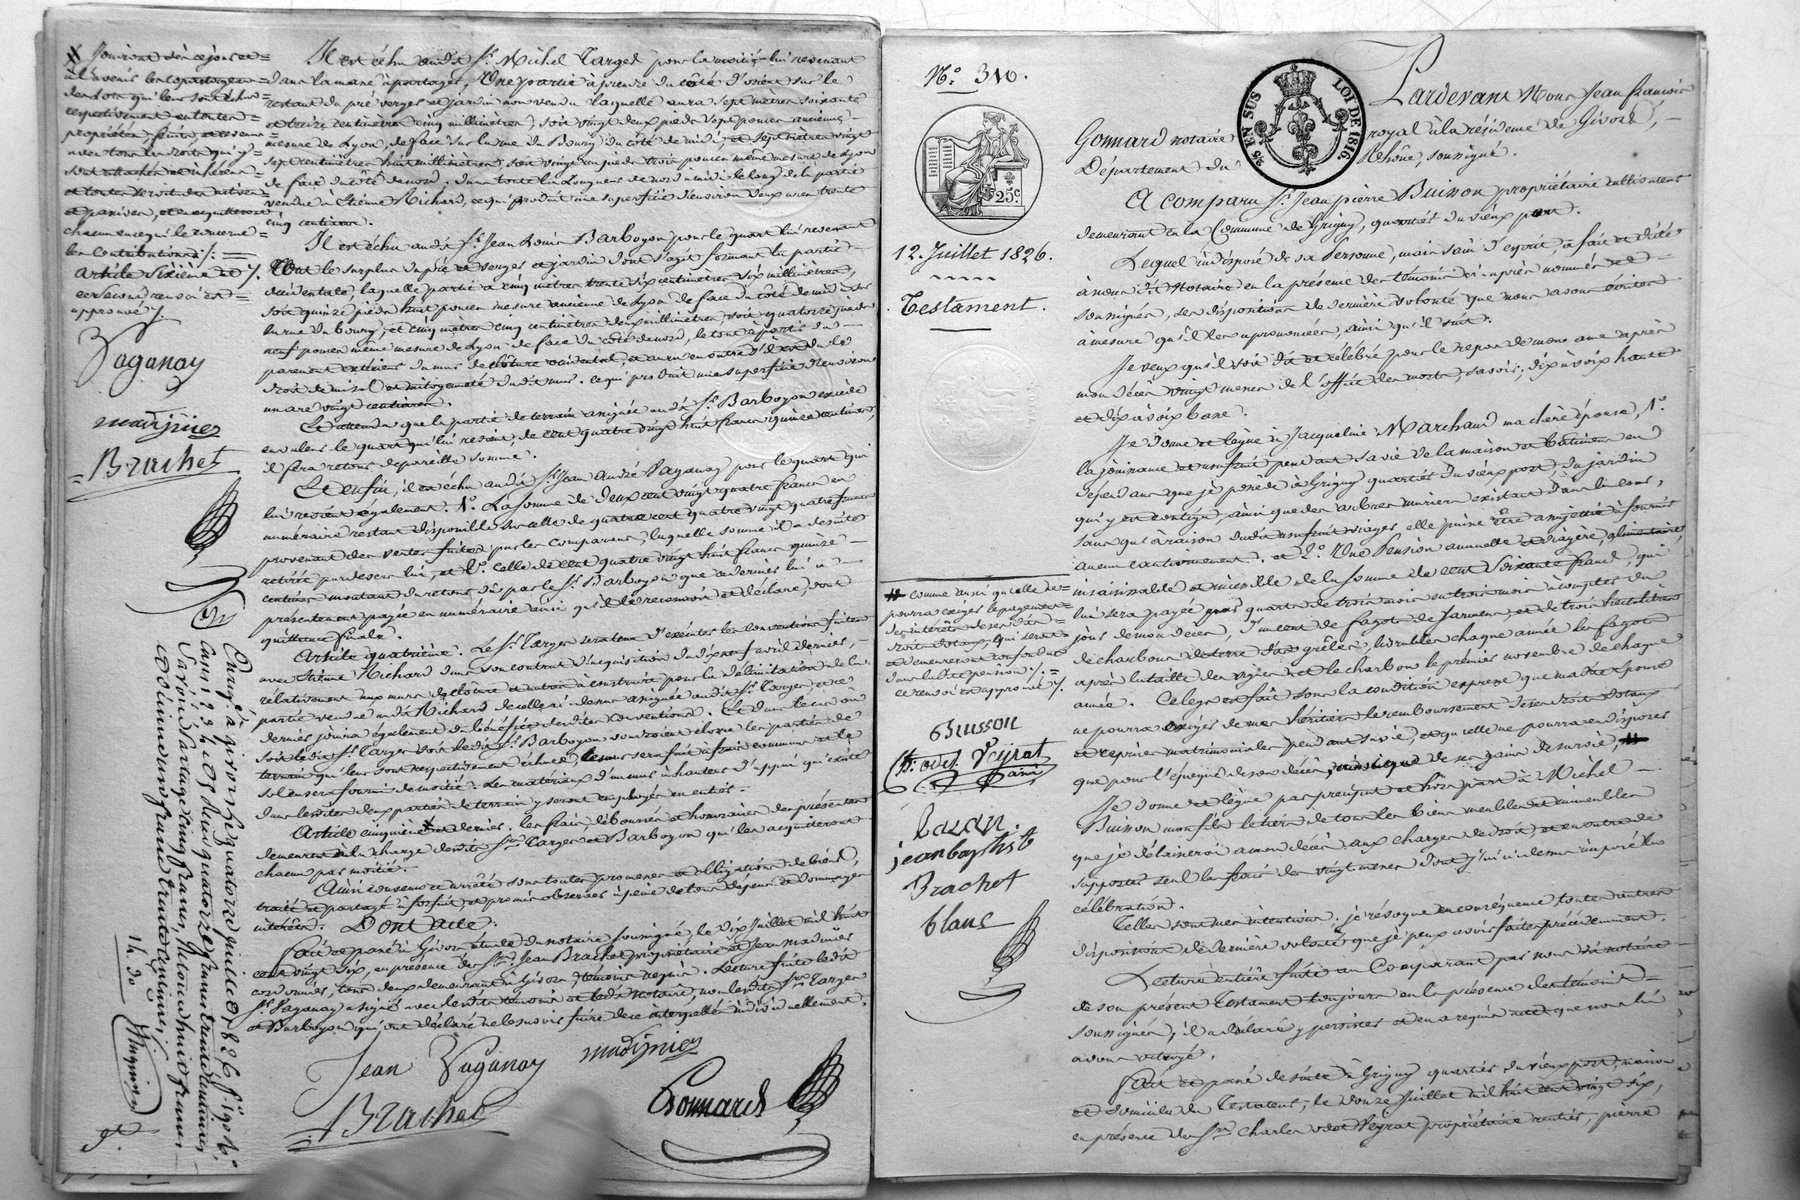 jouiront dès ce jour et
à l'avenir les copartageans
des lots qui leur sont échus
respectivement en toute
propriété, fruits, et revenus
avec tous les droits qui y
sont attachés et inhérens
et toutes servitudes actives
et passives, et en acquitteront
chacun en ce qui le concerne
les contributions
article sixième et
ce second renvoi est
approuvé
Paganay
madignier
Brachet
Il est échu audit Sr. Michel Targes pour la moitié lui revenant
dans la masse à partager, Une partie à prendre du côté d'orient sur le
restant du pré verger et jardin non vendu laquelle aura sept mètres soixante
et treize centimètres cinq millimètres, soit vingt deux pieds sept pouces anciennes
mesure de Lyon, de face sur la rue du Bourg du côté de midi, et sept mètres vingt
sept centimètres huit millimètres soit vingt un pieds trois pouces même mesure de Lyon
de face du côté de nord, dans toute la longueur de nord à midi le long de la partie
vendue à Etienne Richard, ce qui produit une superficie d'environ deux ares trente
cinq centiares.
Il est échu audit Sr. Jean Louis Barboyon pour le quart lui revenant
Tout le surplus du pré et verger et jardin dont s'agit formant la partie
occidentale, laquelle partie a cinq mètres trente six centimètres six millimètres,
soit quinze pieds huit pouces mesure ancienne de Lyon de face du côté de midi sur
la rue du bourg, et cinq mètres cinq centimètres deux millimètres, soit quatorze pieds
neuf pouces même mesure de Lyon de face du côté de nord, le tout à partir du
parement extérieur du mur de clôture occidental, et aura en outre
droit de mi-sol et mitoyenneté dudit mur. ce qui produit une superficie d'environ
un are vingt centiares.
Et attendu que la partie de terrain assignée audit Sr. Barboyon excède
en valeur le quart qui lui revient, de cent quatre vingt huit francs quinze centimes,
il fera retour de pareille somme.
Et enfin, il est échu audit Sr. Jean André Paganay pour le quart qui
lui revient également. 1°. La somme de deux cent vingt quatre francs en
numéraire restant disponible sur celle de quatre cent quatre vingt quatre francs
provenant des ventes faites par les comparans, laquelle somme il a de suite
retirée par devers lui, et 2°. Celle de cent quatre vingt huit francs quinze
centimes montant du retour dû par le Sr. Barboyon que ce dernier lui a
présentement payée en numéraire ainsi qu'il le reconnoit et déclare, dont
quittance finale.
Article quatrième. Le Sr. Targes sera tenu d'exécuter les conventions faites
avec Etienne Richard dans son contrat d'acquisition du dix neuf avril dernier,
relativement aux murs de clôture et autres à construire pour la délimitation de la
partie vendue audit Richard de celle ci dessus assignée audit Sr. Targes, et ce
dernier jouira également du bénéfice desdites conventions. Et dans le cas où
soit ledit Sr. Targes soit ledit Sr. Barboyon voudroient clorre les parties de
terrain qui leur sont respectivement échues, le mur sera fait à frais communs et le
sol en sera fourni de moitié. Les matériaux d'un mur à hauteur d'appui qui existe
dans lesdites deux parties de terrain y seront employés en entier.
Article cinquième et dernier. les frais, déboursés et honoraires des présentes
demeurent à la charge desdits Srs. Targes et Barboyon qui les acquitteront
chacun par moitié.
Ainsi convenu et arrêté sous toutes promesses et obligations de biens,
traité et partagé à forfait, et promis observer à peine de tous dépens et dommages
intérêts. Dont acte.
Fait et passé à Givors étude du notaire soussigné, le dix juillet mil huit
cent vingt six, en présence de Srs. Jean Brachet propriétaire et Jean madinier
cordonnier, tous deux demeurant à Givors, témoins requis. Lecture faite ledit
Sr. Paganay a signé avec lesdits témoins et ledit Notaire, non lesdits Srs. Targes
et Barboyon qui ont déclaré ne le savoir faire de ce interpellés individuellement.
Jean Paganay
madignier
Brachet
Gonnard
N°. 310.
25c
12. Juillet 1826.
Testament.
25 EN SUS
LOI DE 1816
Pardevant Nous Jean françois
Gonnard notaire royal à la résidence de Givors,
Département du Rhône, soussigné.
A comparu Sr. Jean pierre Buisson propriétaire cultivateur
demeurant en la Commune de Grigny, quartier du vieux port.
Lequel indisposé de sa personne, mais sain d'esprit, a fait et dicté
à nous dit Notaire en la présence des témoins ci après nommés et
soussignés, ses dispositions de dernière volonté que nous avons écrites
à mesure qu'il les a prononcées, ainsi qu'il suit.
Je veux qu'il soit dit et célébré pour le repos de mon ame après
mon décès vingt messes de l'office des morts, savoir; dix à voix haute
et dix à voix basse.
Je donne et lègue à Jacqueline Marchand ma chère épouse, 1°.
la jouissance et usufruit pendant sa vie de la maison et bâtimens en
dépendans que je possède à Grigny quartier du vieux port, du jardin
qui y est contigu, ainsi que des arbres muriers existant dans la cour,
sans qu'à raison dudit usufruit viager elle puisse être assujettie à fournir
aucun cautionnement. et 2°. Une Pension annuelle et viagère, alimentaire,
insaisissable et incessible de la somme de cent soixante francs, qui
lui sera payée par quarts de trois mois en trois mois à compter du
jour de mon décès, d'un cent de fagots de sarment, et de trois hectolitres
de charbon de terre dit grêle, livrables chaque année les fagots
après la taille des vignes et le charbon le premier novembre de chaque
année. Ce legs est fait sous la condition expresse que madite épouse
ne pourra exiger de mes héritiers le remboursement de ses droits dotaux
et reprises matrimoniales pendant sa vie, et qu'elle ne pourra en disposer
que pour l'époque de son décès, ainsi que de ses gains de survie,
Je donne et lègue par préciput et hors part à Michel
Buisson mon fils le tiers de tous les biens meubles et immeubles
que je délaisserai à mon décès, aux charges de droit, et en outre de
supporter seul les frais des vingt messes dont j'ai ci dessus imposé la
célébration.
Telles sont mes intentions; je révoque en conséquence toutes autres
dispositions de dernière volonté que je peux avoir faites précédemment.
Lecture entière faite au Comparant par nous dit notaire
de son présent testament toujours en la présence des témoins
soussignés, il a déclaré y persister et en a requis acte que nous lui
avons octroyé.
Fait et passé de suite à Grigny quartier du vieux port, maison
et domicile du Testateur, le douze juillet mil huit cent vingt six,
en présence des Srs. Charles odet Veyrat propriétaire rentier, pierre
comme ainsi qu'elle ne
pourra exiger le payement
des intérêts de ses dits
droits dotaux, qui seront
et demeureront confondus
dans ladite pension
ce renvoi est approuvé
Buisson
Ch. odet Veyrat
Bazin
jean baptiste
Brachet
blanc